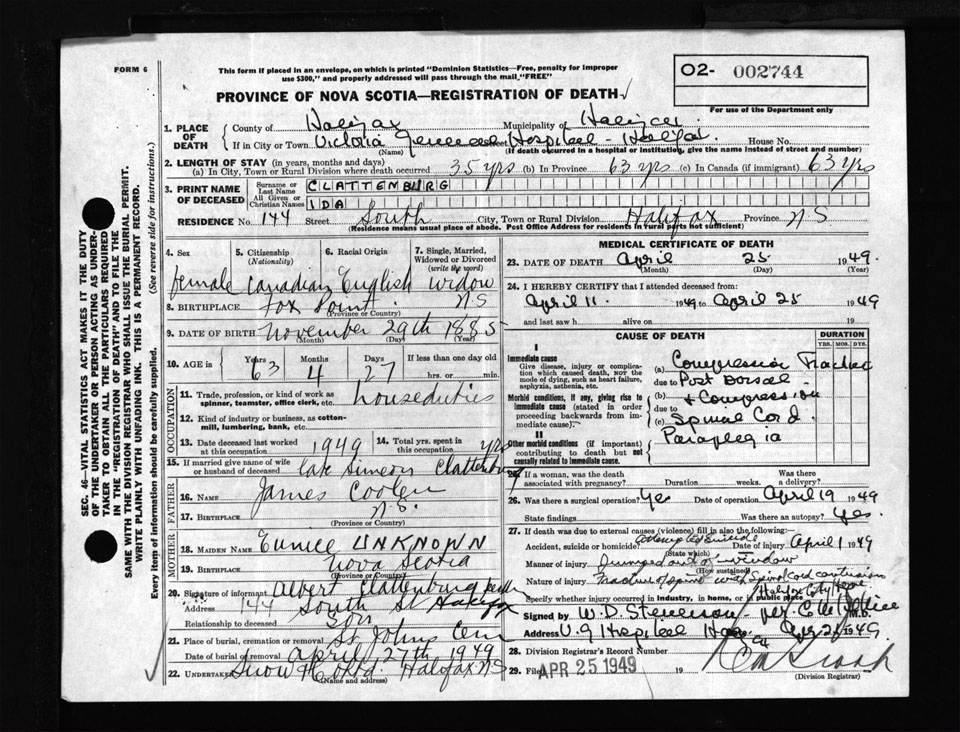 FORM 6
This form if placed in an envelope, on which is printed "Dominion Statistics—Free, penalty for improper
use $300," and properly addressed will pass through the mail "FREE"
PROVINCE OF NOVA SCOTIA—REGISTRATION OF DEATH
02- 002744
For use of the Department only
1. PLACE OF DEATH
County of Halifax Municipality of Halifax
If in City or Town Victoria General Street Hospital - Halifax House No.
(Name) (If death occurred in a hospital or institution, give the name instead of street and number)
2. LENGTH OF STAY (in years, months and days)
(a) In City, Town or Rural Division where death occurred 35 yrs (b) In Province 63 yrs (c) In Canada (if immigrant) 63 yrs
3. PRINT NAME OF DECEASED
Surname or Last Name CLATTENBURG
All Given or Christian Names IDA
RESIDENCE No. 144 Street South City, Town or Rural Division Halifax Province N S
(Residence means usual place of abode. Post Office Address for residents in rural parts not sufficient)
4. Sex 5. Citizenship (Nationality) 6. Racial Origin 7. Single, Married, Widowed or Divorced (write the word)
female Canadian English widow
8. BIRTHPLACE Fox Point N S
(Province or Country)
9. DATE OF BIRTH November 29th 1885
(Month) (Day) (Year)
10. AGE in Years Months Days If less than one day old
63 4 27 hrs. or min.
OCCUPATION
11. Trade, profession, or kind of work as spinner, teamster, office clerk, etc. houseduties
12. Kind of industry or business, as cotton-mill, lumbering, bank, etc.
13. Date deceased last worked at this occupation 1949 14. Total yrs. spent in this occupation yrs
15. If married give name of wife or husband of deceased late Simeon Clattenburg
FATHER
16. NAME James Coolen
17. BIRTHPLACE N.S.
(Province or Country)
MOTHER
18. MAIDEN NAME Eunice UNKNOWN
19. BIRTHPLACE Nova Scotia
(Province or Country)
20. Signature of informant Albert Clattenburg
Address 144 South St Halifax
Relationship to deceased Son
21. Place of burial, cremation or removal St Johns Cem
Date of burial or removal April 27th 1949
22. UNDERTAKER Snow & Co Ltd. Halifax NS
(Name and address)
MEDICAL CERTIFICATE OF DEATH
23. DATE OF DEATH April 25 1949
(Month) (Day) (Year)
24. I HEREBY CERTIFY that I attended deceased from:
April 11 1949 to April 25 1949
and last saw h alive on 19
CAUSE OF DEATH
DURATION
YRS. MOS. DYS.
I
Immediate cause
Give disease, injury or complication which caused death, not the mode of dying, such as heart failure, asphyxia, asthenia, etc.
(a) Compression Fracture
due to Post Dorsal
Morbid conditions, if any, giving rise to immediate cause (stated in order proceeding backwards from immediate cause).
(b) & Compression
due to
(c) Spinal Cord.
II
Other morbid conditions (if important) contributing to death but not causally related to immediate cause.
Paraplegia
25. If a woman, was the death associated with pregnancy? Duration weeks. Was there a delivery?
26. Was there a surgical operation? Yes Date of operation April 19 1949
State findings Was there an autopsy? Yes.
27. If death was due to external causes (violence) fill in also the following:—
Accident, suicide or homicide? attempted suicide Date of injury April 1949
(State which)
Manner of injury Jumped out of window
(How sustained)
Nature of injury Fracture of spine with spinal cord contusion
Specify whether injury occurred in industry, in home, or in public place Halifax City Home
Signed by W. D. Stevenson M.D.
Address V. G Hospital 1949
28. Division Registrar's Record Number
29. Filed APR 25 1949 19
(Division Registrar)
SEC. 46—VITAL STATISTICS ACT MAKES IT THE DUTY
OF THE UNDERTAKER OR PERSON ACTING AS UNDER-
TAKER TO OBTAIN ALL THE PARTICULARS REQUIRED
IN THE "REGISTRATION OF DEATH" AND TO FILE THE
SAME WITH THE DIVISION REGISTRAR WHO SHALL ISSUE THE BURIAL PERMIT.
WRITE PLAINLY WITH UNFADING INK. THIS IS A PERMANENT RECORD.
Every item of information should be carefully supplied. (See reverse side for instructions.)